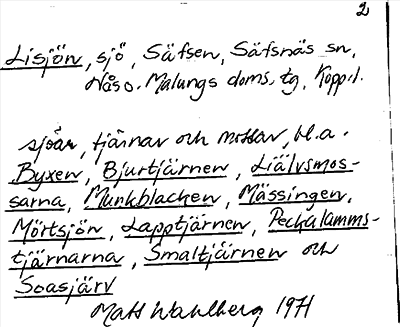 2
Lisjön, sjö, Säfsen, Säfsnäs sn,
Nås o. Malungs doms. tg, Kopp. l.
sjöar, tjärnar och mossar, bl.a.
Byxen, Bjurtjärnen, Liälvsmos-
sarna, Munkblacken, Mässingen,
Mörtsjön, Lapptjärnen, Peckalamms-
tjärnarna, Smaltjärnen och
Soasjärv
Mats Wahlberg 1971